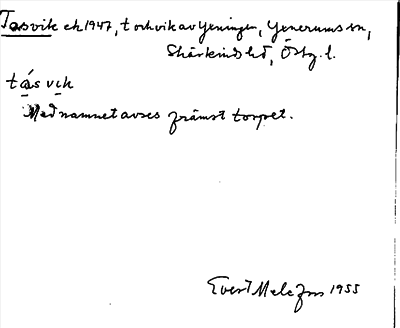 Tasvik ek 1947, t och vik av Yeningen, Yxnerums sn,
Skärkinds hd, Östg. l.
tás vik
Med namnet avses främst torpet.
Evert Melefors 1955